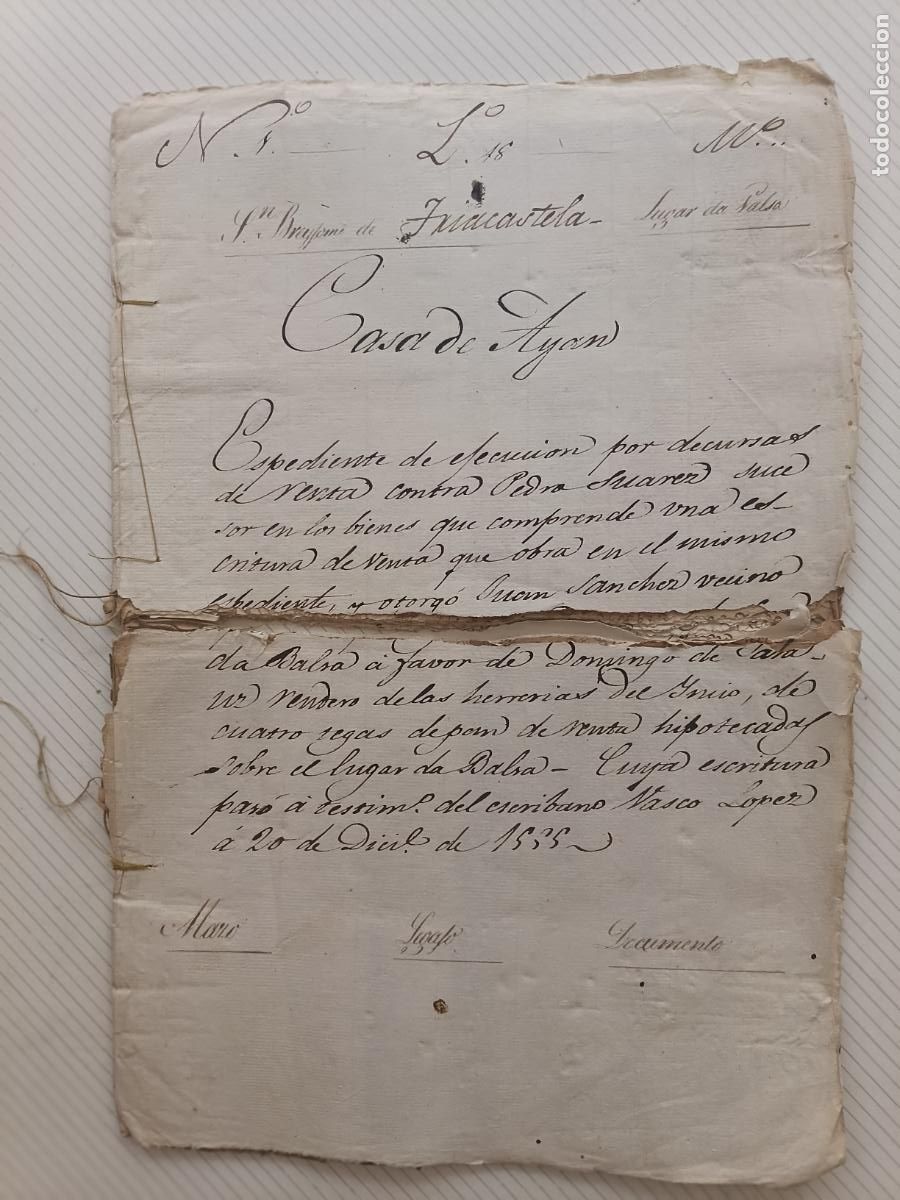 N. 1.º L.º 18 Mº...
Sn. de Triacastela Lugar da Balsa
Casa de Ayan
Espediente de ejecucion por decursas
de renta contra Pedro Suarez suce
sor en los bienes que comprende vna es-
critura de venta que obra en el mismo
espediente, y otorgó Juan Sanchez vecino
da Balsa á favor de Domingo de
de las herrerias del Incio, de
cuatro tegas de pan de renta hipotecadas
sobre el lugar da Balsa - Cuya escritura
pasó á testim.º del escribano Vasco Lopez
á 20 de Dici.e de 1535
Mazo Legajo Documento
todocoleccion